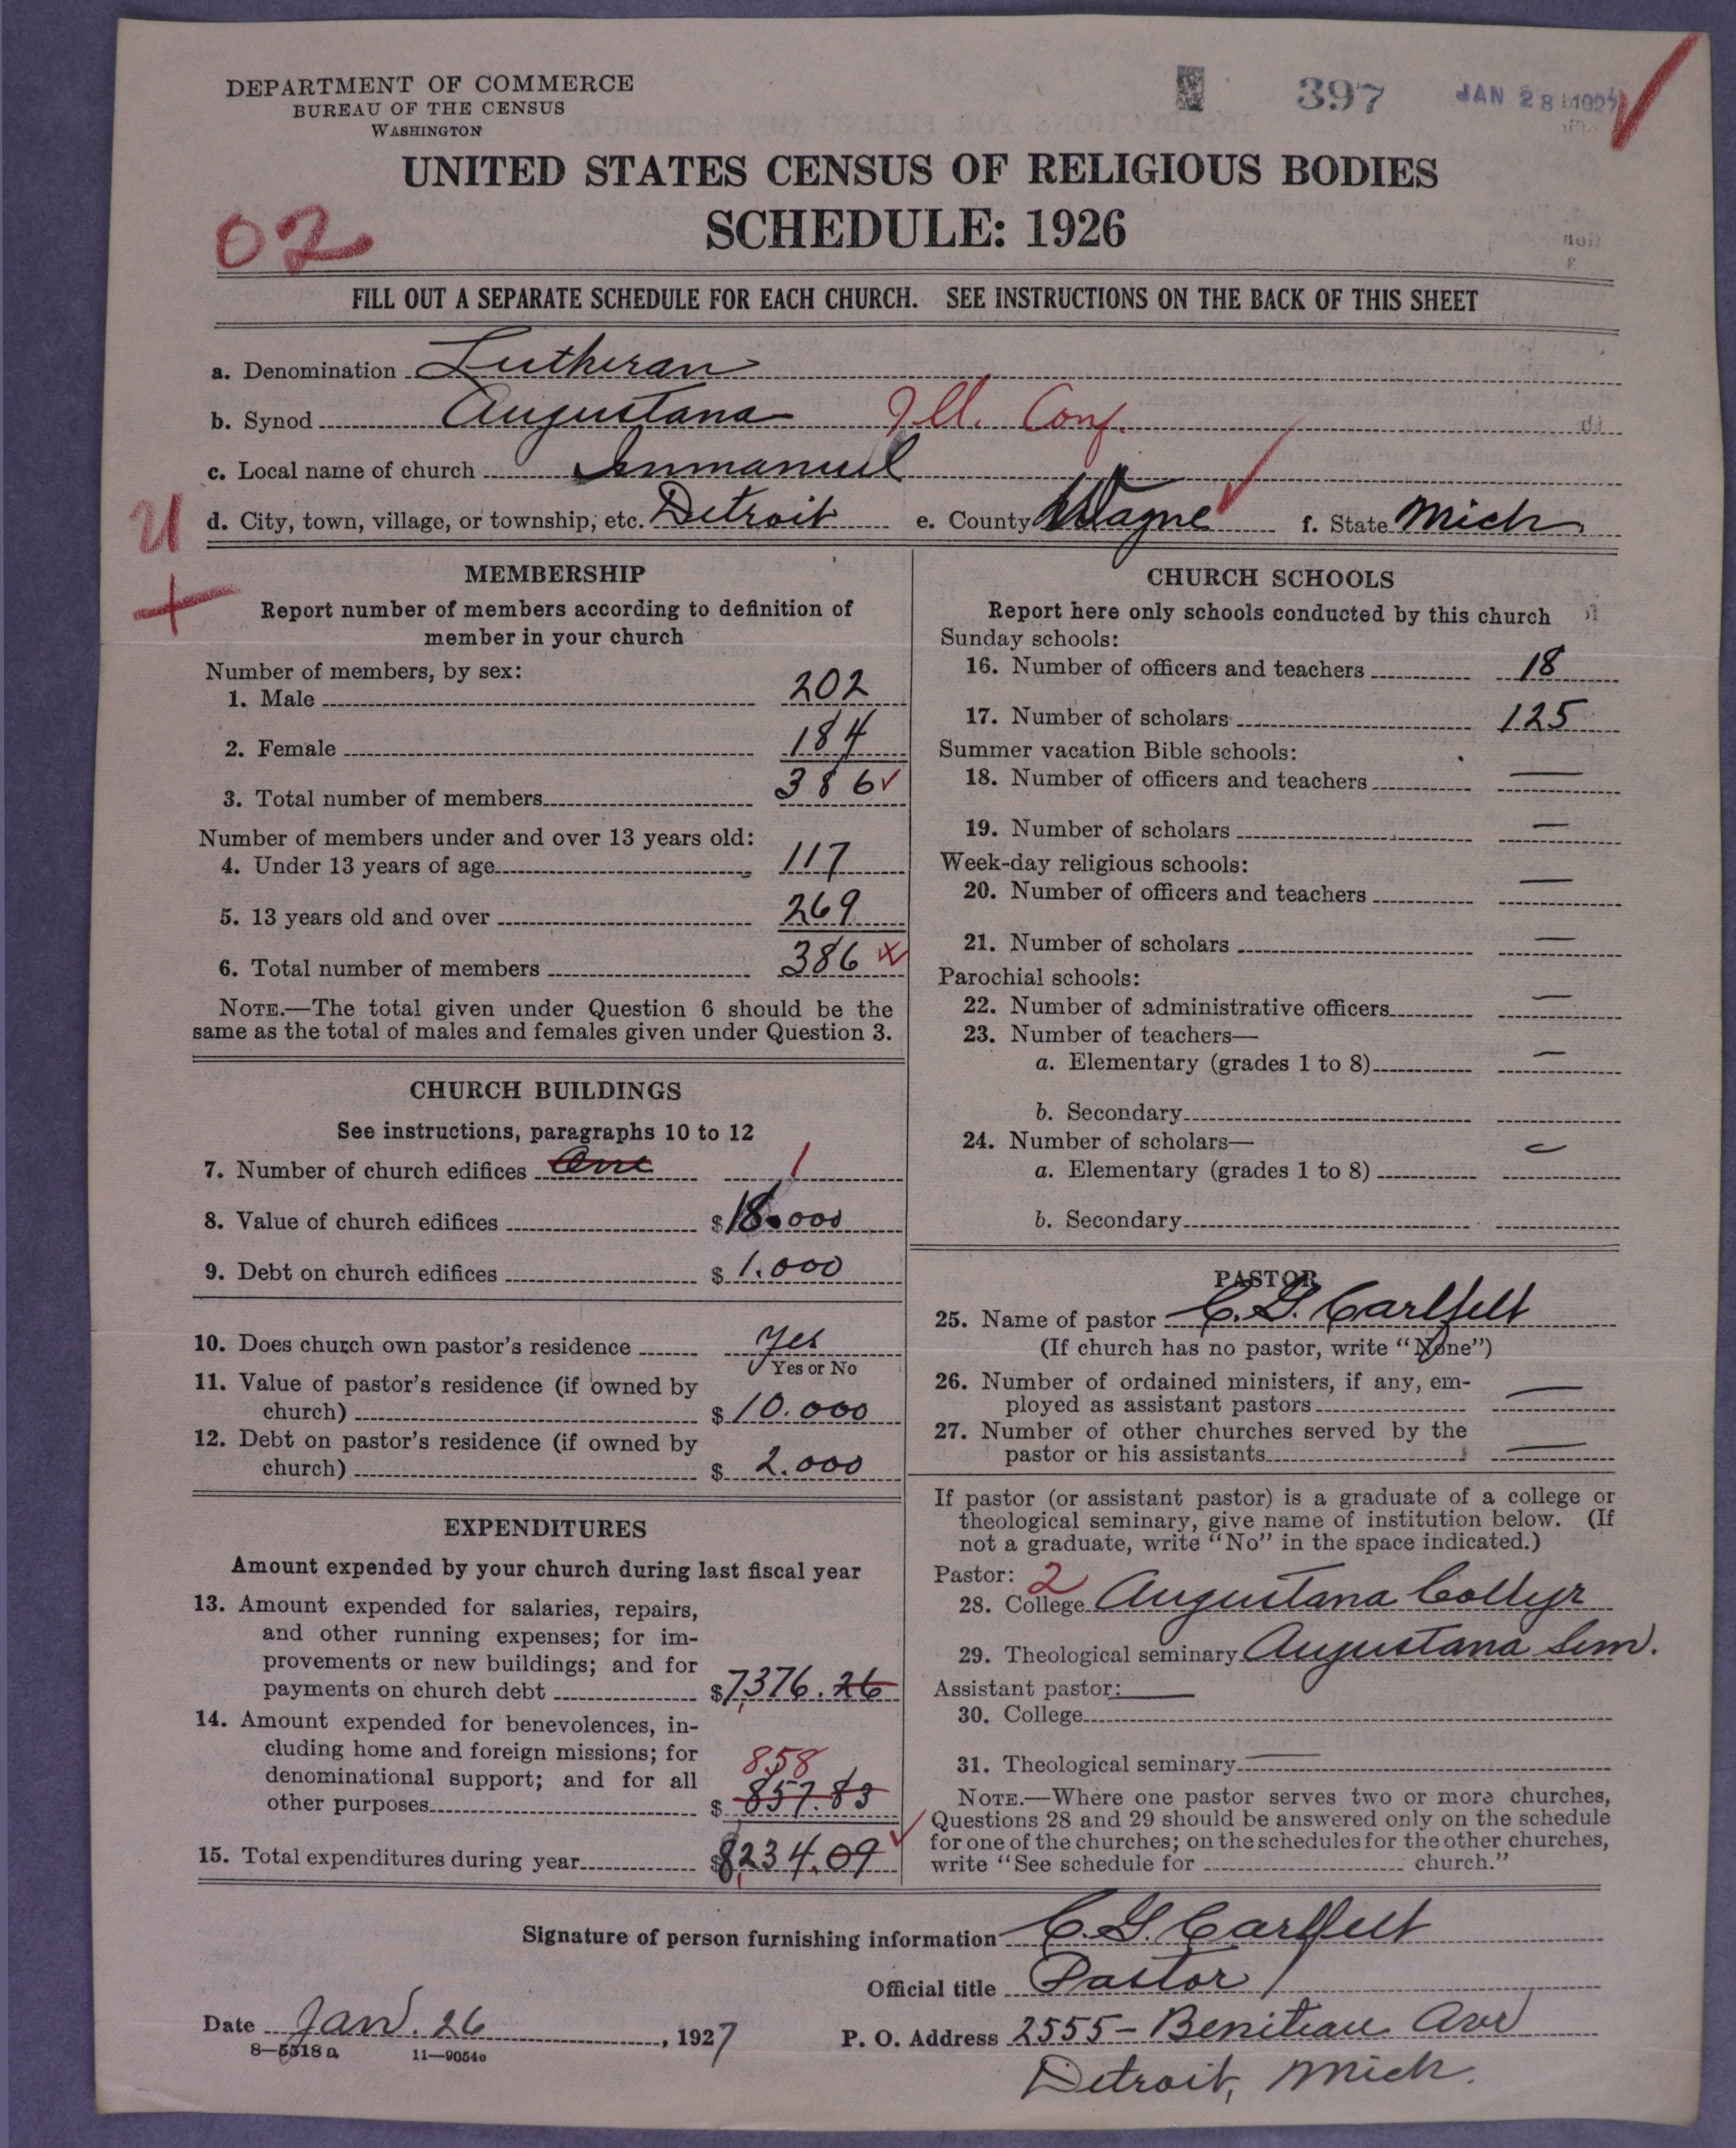 DEPARTMENT OF COMMERCE
BUREAU OF THE CENSUS
WASHINGTON
397
JAN 28 1927
UNITED STATES CENSUS OF RELIGIOUS BODIES
02
SCHEDULE: 1926
FILL OUT A SEPARATE SCHEDULE FOR EACH CHURCH. SEE INSTRUCTIONS ON THE BACK OF THIS SHEET
a. Denomination Lutheran
b. Synod Augustana Ill. Conf.
c. Local name of church Immanuel
U d. City, town, village, or township, etc. Detroit e. County Wayne f. State Mich
MEMBERSHIP
Report number of members according to definition of
member in your church
Number of members, by sex:
1. Male 202
2. Female 184
3. Total number of members 386
Number of members under and over 13 years old:
4. Under 13 years of age 117
5. 13 years old and over 269
6. Total number of members 386
NOTE.—The total given under Question 6 should be the
same as the total of males and females given under Question 3.
CHURCH BUILDINGS
See instructions, paragraphs 10 to 12
7. Number of church edifices One 1
8. Value of church edifices $18.000
9. Debt on church edifices $1.000
10. Does church own pastor's residence Yes
Yes or No
11. Value of pastor's residence (if owned by
church) $10.000
12. Debt on pastor's residence (if owned by
church) $2.000
EXPENDITURES
Amount expended by your church during last fiscal year
13. Amount expended for salaries, repairs,
and other running expenses; for im-
provements or new buildings; and for
payments on church debt $7,376.26
14. Amount expended for benevolences, in-
cluding home and foreign missions; for
denominational support; and for all
858
other purposes $857.83
15. Total expenditures during year $8,234.09
CHURCH SCHOOLS
Report here only schools conducted by this church
Sunday schools:
16. Number of officers and teachers 18
17. Number of scholars 125
Summer vacation Bible schools:
18. Number of officers and teachers —
19. Number of scholars —
Week-day religious schools:
20. Number of officers and teachers —
21. Number of scholars —
Parochial schools:
22. Number of administrative officers —
23. Number of teachers—
a. Elementary (grades 1 to 8) —
b. Secondary
24. Number of scholars—
a. Elementary (grades 1 to 8) —
b. Secondary
PASTOR
25. Name of pastor C. G. Carlfelt
(If church has no pastor, write "None")
26. Number of ordained ministers, if any, em-
ployed as assistant pastors —
27. Number of other churches served by the
pastor or his assistants —
If pastor (or assistant pastor) is a graduate of a college or
theological seminary, give name of institution below. (If
not a graduate, write "No" in the space indicated.)
Pastor: 2
28. College Augustana College
29. Theological seminary Augustana Sem.
Assistant pastor: —
30. College
31. Theological seminary —
NOTE.—Where one pastor serves two or more churches,
Questions 28 and 29 should be answered only on the schedule
for one of the churches; on the schedules for the other churches,
write "See schedule for church."
Signature of person furnishing information C. G. Carlfelt
Official title Pastor
Date Jan. 26, 1927 P. O. Address 2555 - Beniteau Ave
8—5518 a 11—9054c
Detroit, Mich.